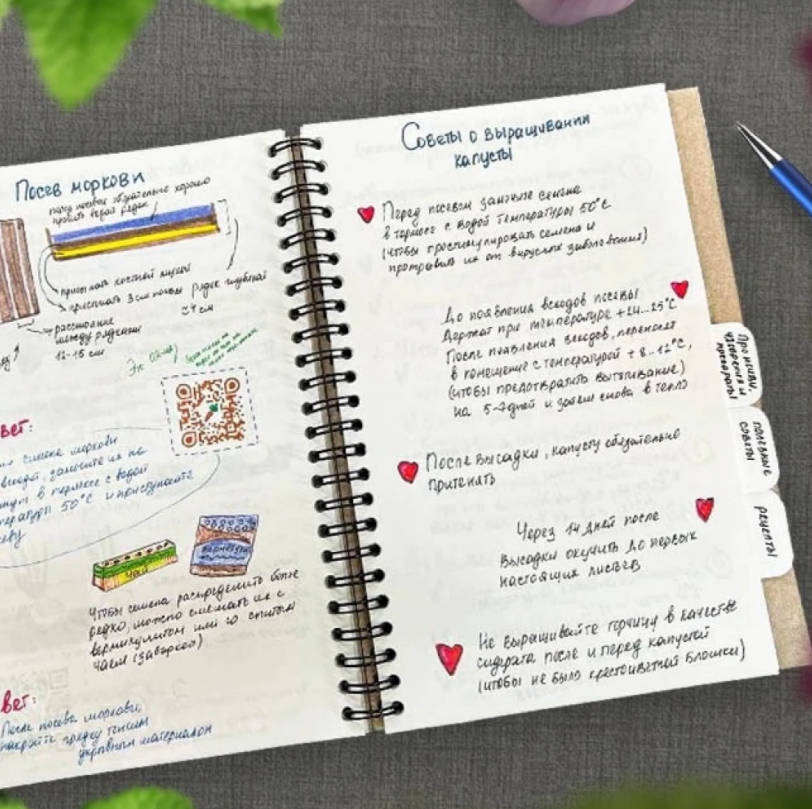 Посев моркови
перед посевом обязательно хорошо
пролить водой рядок
присыпать костной мукой
присыпать 3 см почвы
рядок глубиной
≈4 см
расстояние
между рядками
12-15 см
вет:
семена моркови
замочите их на
в термосе с водой
температуры 50°С и приступайте
Чай
вермикулит
Чтобы семена распределить более
редко, можно смешать их с
вермикулитом или со спитым
чаем (заваркой)
вет:
После посева моркови,
накройте грядку тонким
укрывным материалом
Советы о выращивании
капусты
Перед посевом замочите семена
в термосе с водой температуры 50°С
(чтобы простимулировать семена и
протравить их от вирусных заболеваний)
До появления всходов посевы
держат при температуре +24...25°С
После появления всходов, переносят
в помещение с температурой +8...12°С,
(чтобы предотвратить вытягивание)
на 5-7дней и затем снова в тепло
После высадки, капусту обязательно
притенять
Через 14 дней после
высадки окучить до первых
настоящих листьев
Не выращивайте горчицу в качестве
сидерата после и перед капустой
(чтобы не было крестоцветной блошки)
Про почвы,
удобрения и
препараты
полезные
советы
рецепты